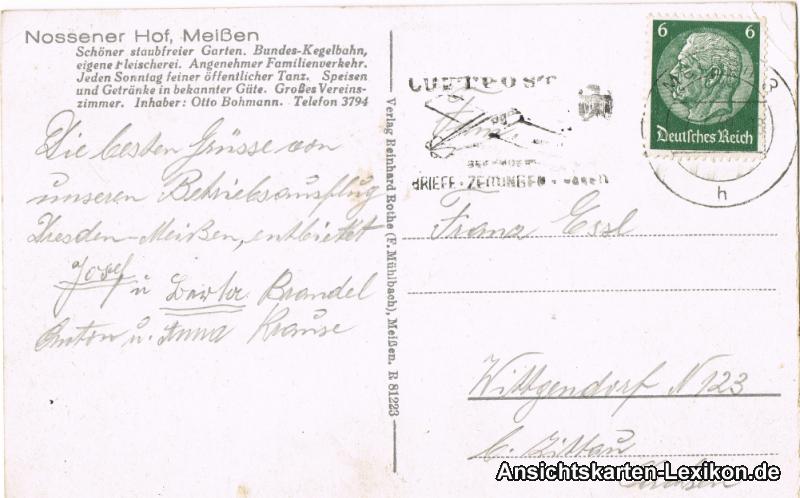 Nossener Hof, Meißen
Schöner staubfreier Garten. Bundes-Kegelbahn,
eigene Fleischerei. Angenehmer Familienverkehr.
Jeden Sonntag feiner öffentlicher Tanz. Speisen
und Getränke in bekannter Güte. Großes Vereins-
zimmer. Inhaber: Otto Bohmann. Telefon 3794
Die besten Grüsse von
unseren Betriebsausflug
Dresden-Meißen, entbietet
Josef
u Brandel
Anton u. Anna Krause
Verlag Reinhard Rothe (F. Mühlbach), Meißen. R 81223
LUFTPOST
BRIEFE · ZEITUNGEN ·
6 6
Deutsches Reich
h
Franz Essl
Wittgendorf N 123
b. Zittau
Sachsen
Ansichtskarten-Lexikon.de